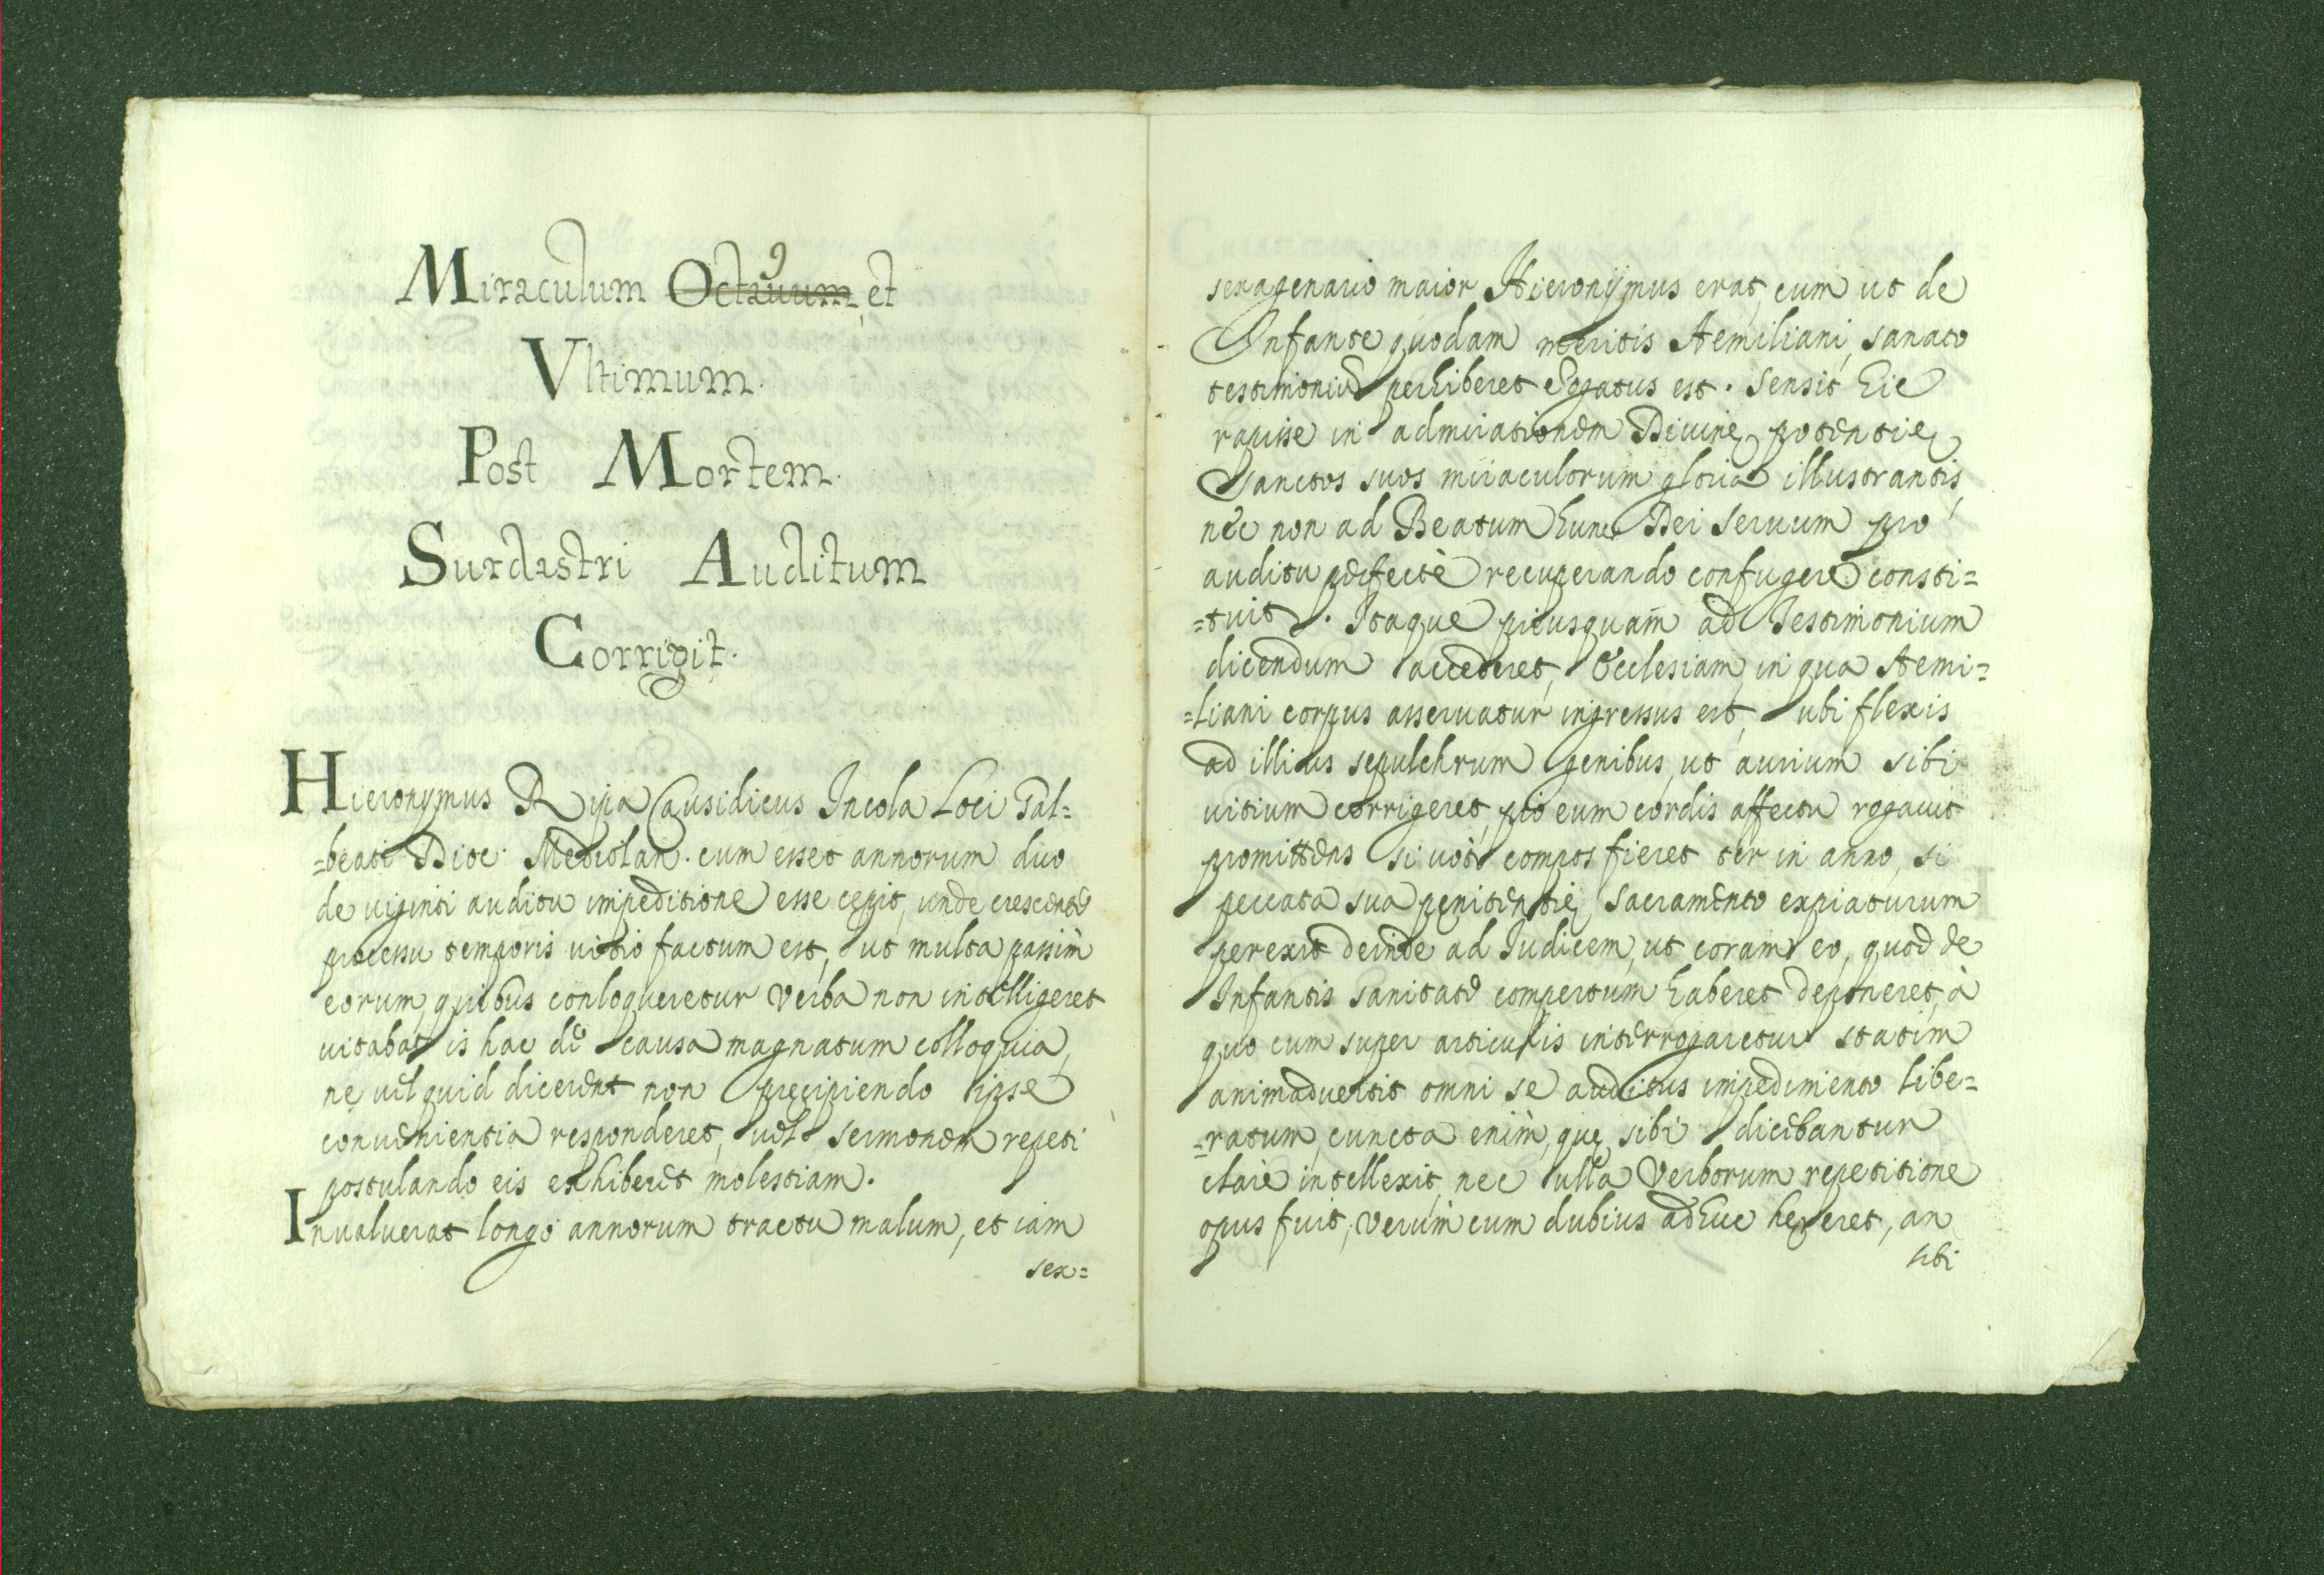 9
Miraculum Octauum, et
Vltimum.
Post Mortem.
Surdastri Auditum
Corrigit.
Hieronymus Ripa Causidicus Incola Loci Gal=
=beati Dioc. Mediolan. cum esset annorum duo
de uiginti auditu impeditione esse cepit, unde crescente
processu temporis uitio factum est, ut multa passim
eorum, quibus conloqueretur verba non intelligeret
uitabat is hac de causa magnatum colloquia,
ne uel quid dicerent non precipiendo ipse
conuenientia responderet, uel sermonem repeti
postulando eis exhiberet molestiam.
Inualuerat longo annorum tractu malum, et iam
sex=
sexagenario maior Hieronÿmus erat, cum ut de
Infante quodam meritis Aemiliani, sanato
testimoniũ perhiberet rogatus est. Sensit hic
rapi se in admirationem Diuinę potentię
Sanctos suos miraculorum gloria illustrantis,
nec non ad Beatum hunc Dei seruum pro
auditu perfectè recuperando confugere consti=
=tuit. Itaque priusquam ad Testimonium
dicendum accederet, Ecclesiam, in qua Aemi=
=liani corpus asseruatur ingressus est, ubi flexis
ad illius sepulchrum genibus, ut aurium sibi
uitium corrigeret, pio eum cordis affectu rogauit
promittens si uoti compos fieret ter in anno, si
peccata sua penitentię, sacramento expiaturum
perexit deinde ad Iudicem, ut coram eo, quod de
Infantis sanitate compertum haberet deponeret, à
quo cum super articulis interrogaretur statim
animaduertit omni se auditus impedimento libe=
=ratum, cuncta enim, quę sibi dicebantur
clarè intellexit, nec ulla verborum repetitione
opus fuit, verùm cum dubius adhuc hereret, an
sibi